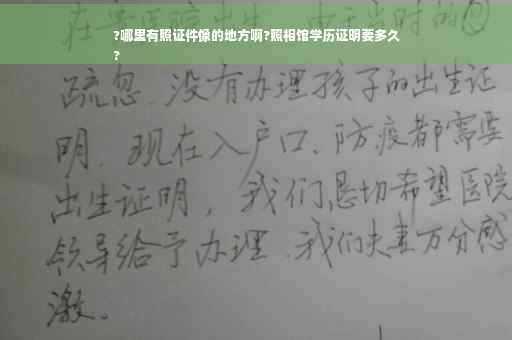 ?哪里有照证件像的地方啊?照相馆学历证明要多久
?
在 医院出生 由于当时的
疏忽.没有办理孩子的出生证
明.现在入户口、防疫都需要
出生证明，我们恳切希望医院
领导给予办理.我们夫妻万分感
激。